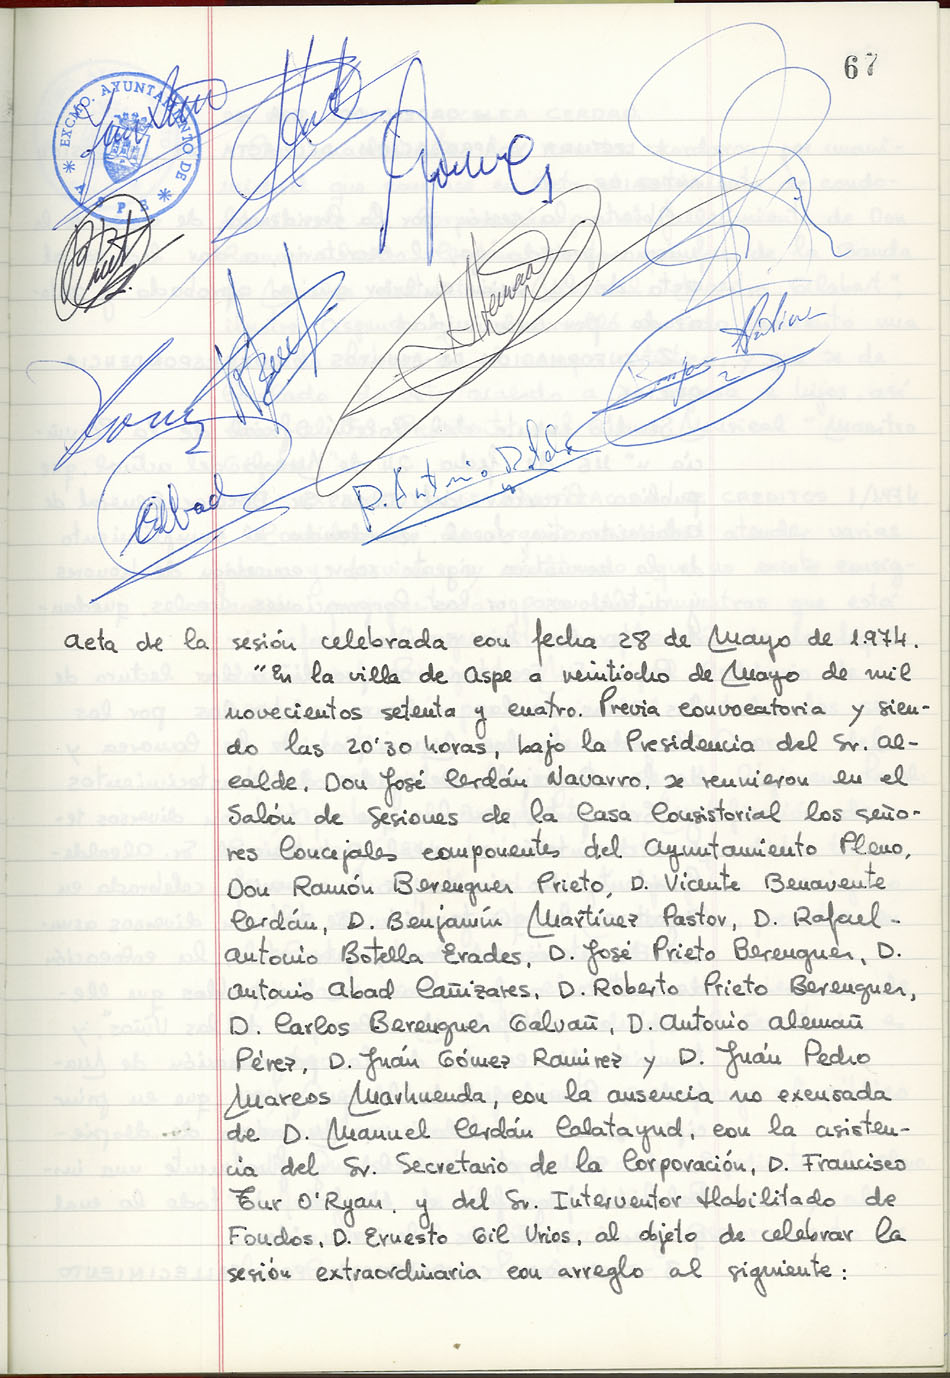 67
EXCMO. AYUNTAMIENTO DE
ASPE
R. Antonio Botella
Abad
Acta de la sesión celebrada con fecha 28 de Mayo de 1.974.
"En la villa de Aspe a veintiocho de Mayo de mil
novecientos setenta y cuatro. Previa convocatoria y sien-
do las 20'30 horas, bajo la Presidencia del Sr. Al-
calde, Don José Cerdán Navarro, se reunieron en el
Salón de Sesiones de la Casa Consistorial los seño-
res Concejales componentes del Ayuntamiento Pleno,
Don Ramón Berenguer Prieto, D. Vicente Benavente
Cerdán, D. Benjamín Martínez Pastor, D. Rafael-
Antonio Botella Erades, D. José Prieto Berenguer, D.
Antonio Abad Cañizares, D. Roberto Prieto Berenguer,
D. Carlos Berenguer Galvañ, D. Antonio Alemañ
Pérez, D. Juán Gómez Ramirez y D. Juán Pedro
Marcos Marhuenda, con la ausencia no excusada
de D. Manuel Cerdán Calatayud, con la asisten-
cia del Sr. Secretario de la Corporación, D. Francisco
Tur O'Ryan, y del Sr. Interventor Habilitado de
Fondos, D. Ernesto Gil Urios, al objeto de celebrar la
sesión extraordinaria con arreglo al siguiente: